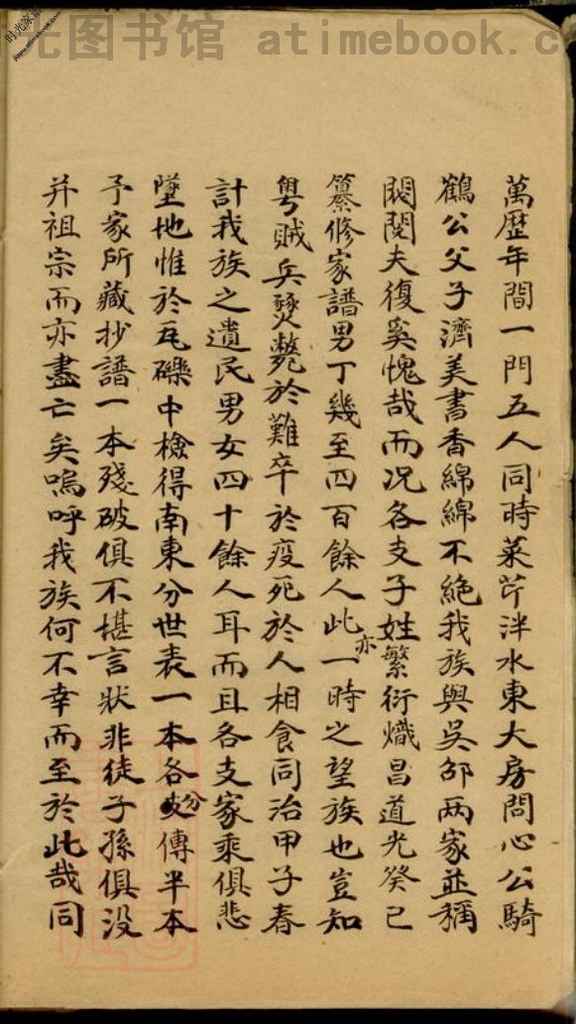 光图书馆 atimebook.c
萬歷年間一門五人同時菜芹泮水東大房問心公騎
鶴公父子濟美書香綿綿不絕我族與吳邵两家並稱
閥閱夫復奚愧哉而况各支子姓繁衍熾昌道光癸已
纂修家譜男丁幾至四百餘人此亦一時之望族也豈知
粤賊兵燹斃於難卒於疫死於人相食同治甲子春
計我族之遺民男女四十餘人耳而且各支家乘俱悲
墜地惟於瓦礫中檢得南東分世表一本各分支傳半本
予家所藏抄譜一本殘破俱不堪言狀非徒子孫俱没
并祖宗而亦盡亡矣嗚呼我族何不幸而至於此哉同